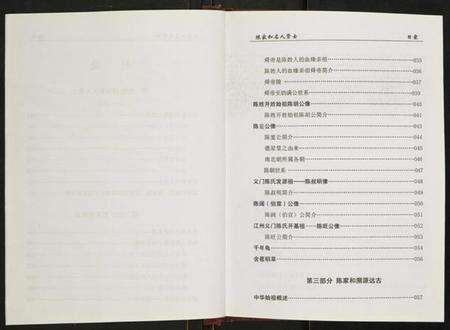 陈家和名人贤士 目录
舜帝是陈姓人的血缘亲祖 035
陈姓人的血缘亲祖舜帝简介 036
舜帝陵 037
舜帝至妫满公世系 039
陈姓开姓始祖陈胡公像 040
陈姓开姓始祖陈胡公简介 041
陈公像 042
陈寔公简介 043
德星堂之由来 045
南北朝所属各朝 046
陈朝世系 047
义门陈氏发源祖——陈叔明像 048
陈叔明简介 049
陈阔(伯宣)公像 050
陈阔(伯宣)公简介 051
江州义门陈氏开基祖——陈旺公像 052
陈旺公简介 053
千年龟 054
含苞稻草 056
第三部分 陈家和溯源远古
中华始祖概述 057